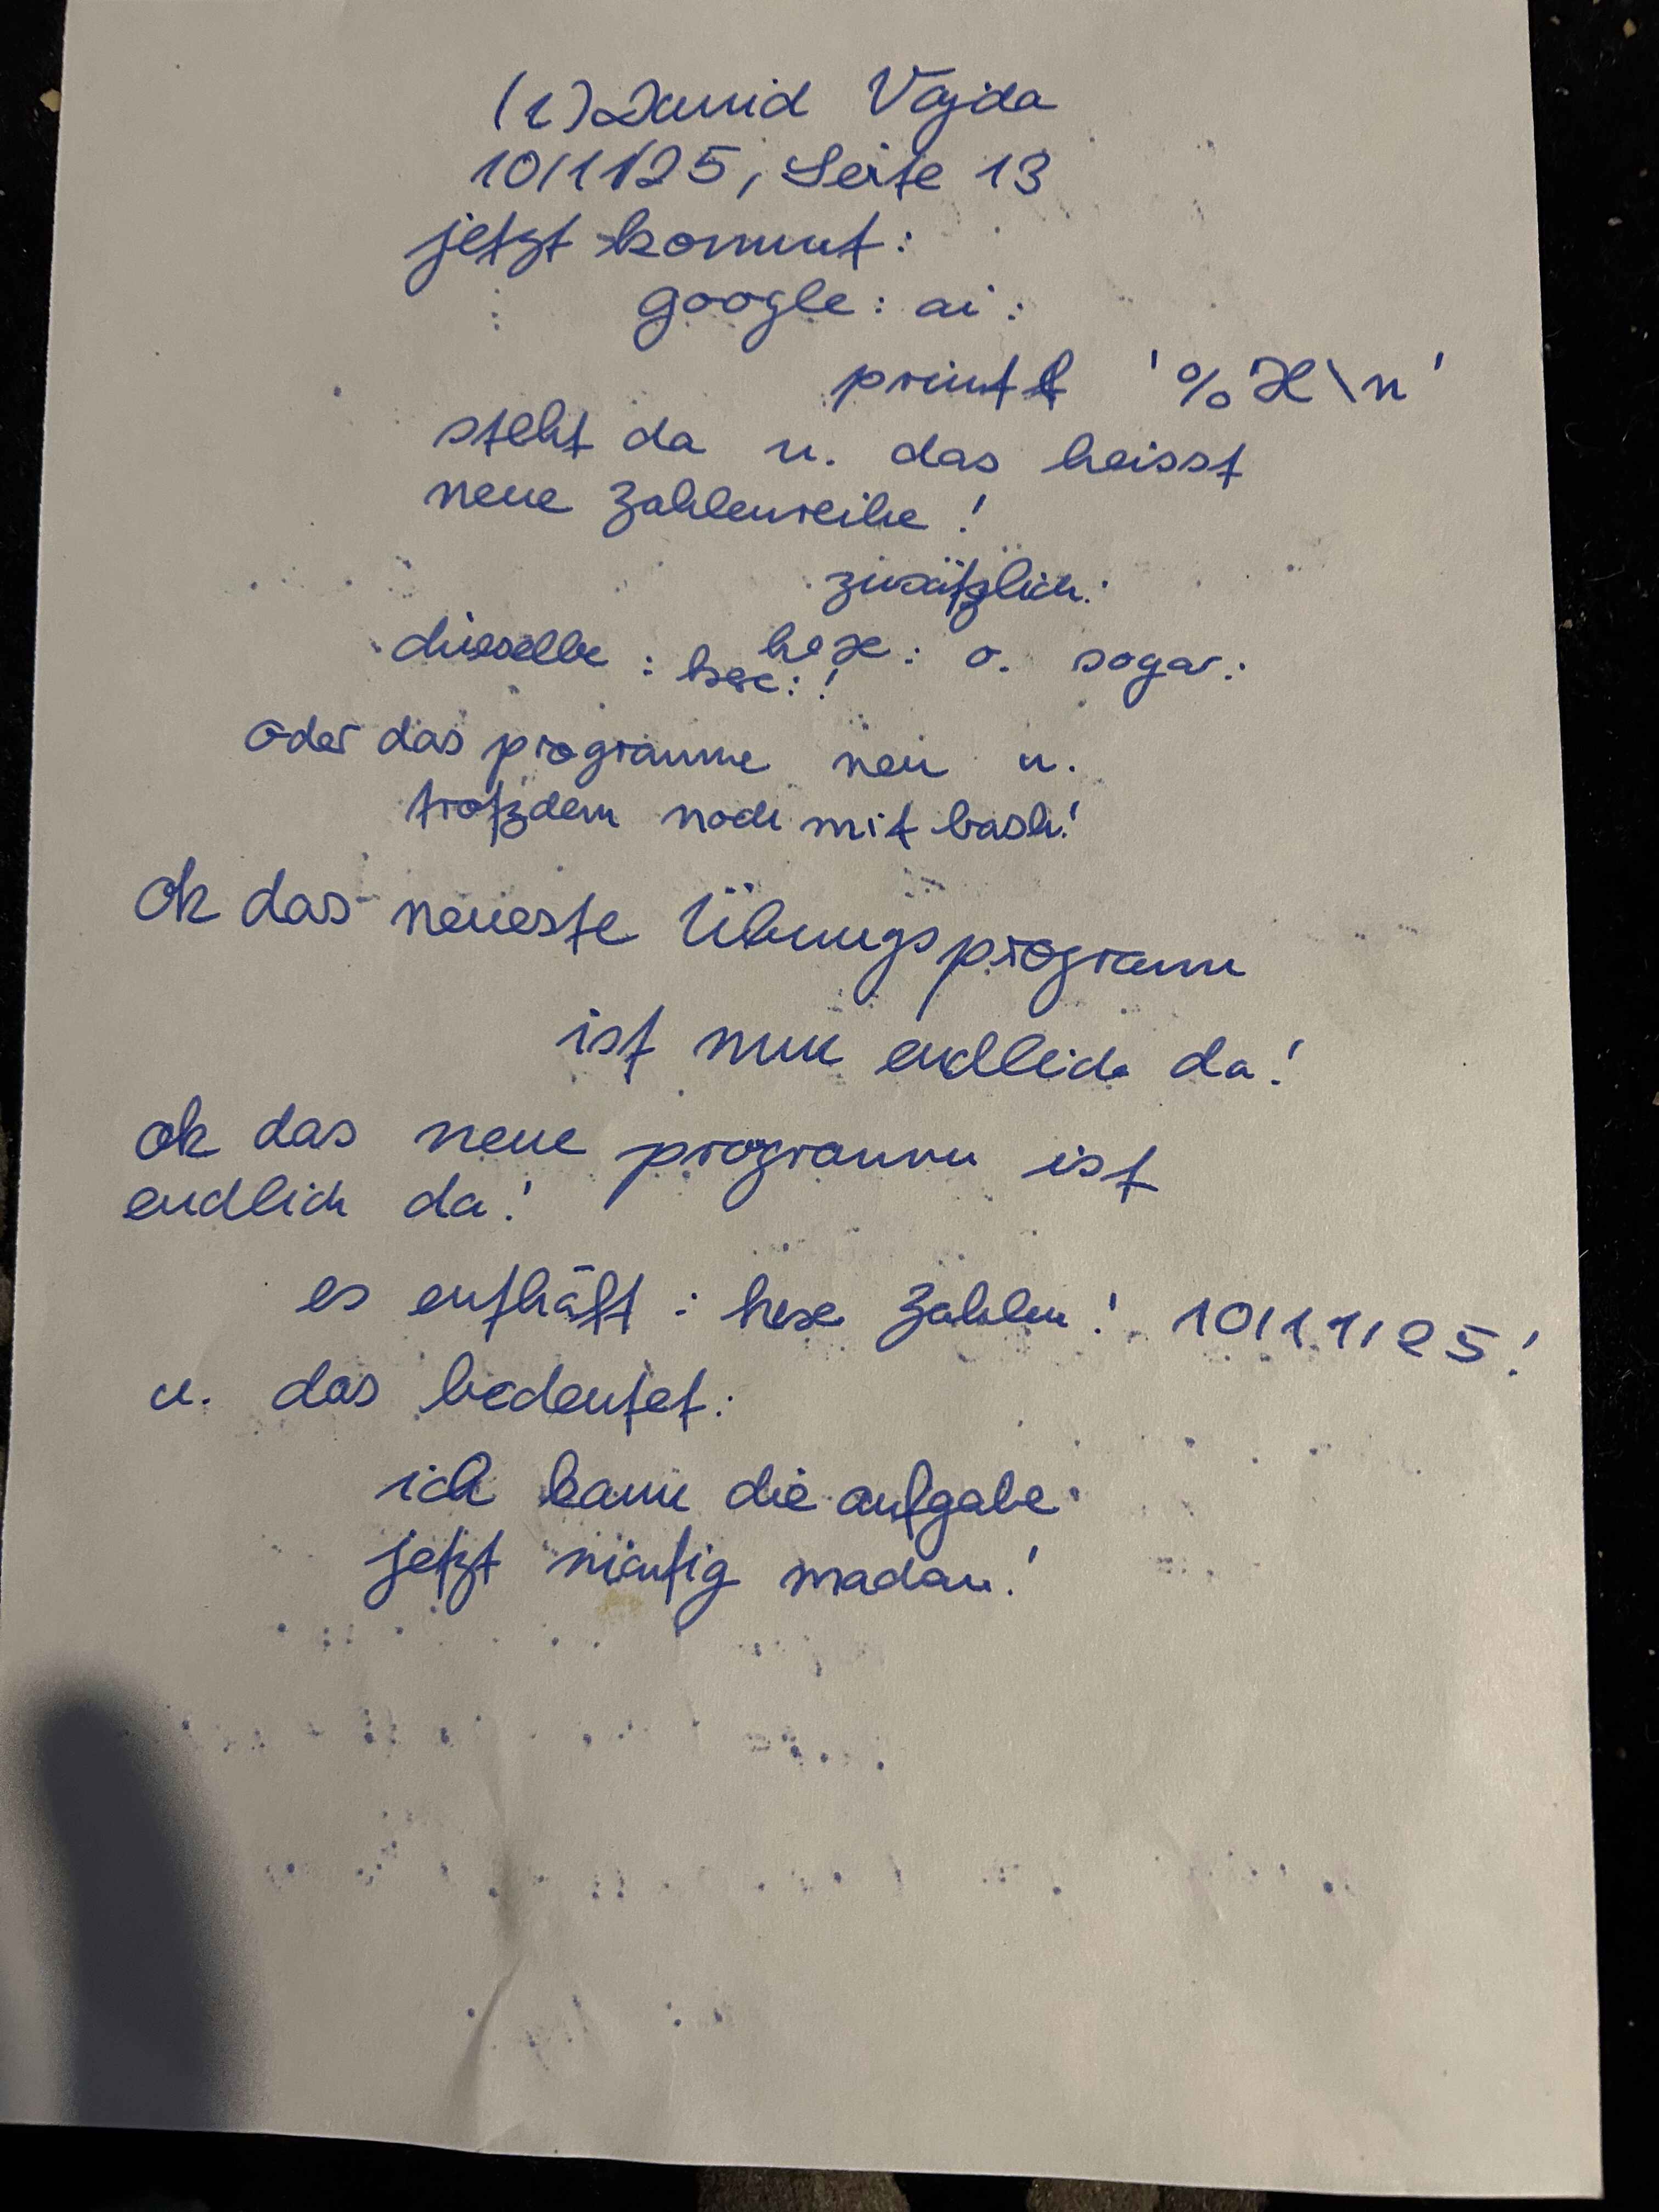 (c) David Vajda
10/11/25, Seite 13
jetzt kommt:
google: ai:
printf '%X\n'
steht da u. das heisst
neue Zahlenreihe!
zusätzlich:
dieselbe: hex: o. sogar:
hex:!
oder das programm neu u.
trotzdem noch mit bash!
Ok das neueste Übungsprogramm
ist nun endlich da!
ok das neue programm ist
endlich da!
es enthält: hex Zahlen! 10/11/25!
u. das bedeutet:
ich kann die aufgabe
jetzt richtig machen!